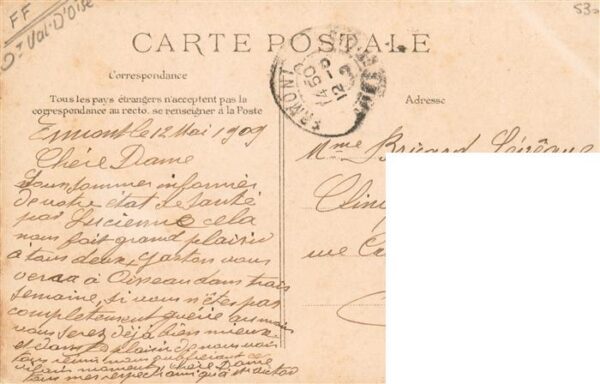 FF
Val-D'Oise
CARTE POSTALE
Correspondance
Tous les pays étrangers n'acceptent pas la
correspondance au recto. se renseigner à la Poste
Adresse
Ermont le 12 Mai 1909
Chère Dame
Nous sommes informés
de votre état de santé
par Lucienne cela
nous fait grand plaisir
à tous deux, Gaston vous
verra à dans trois
semaine, si vous n'êtes pas
completement guérie au moins
vous serez déjà bien mieux
et dans le plaisir de nous voir
tous
vilain moment, chère Dame
tous mes respects ainsi qu'à
ERMONT
Mme Bricard Lévêque
Clini
rue